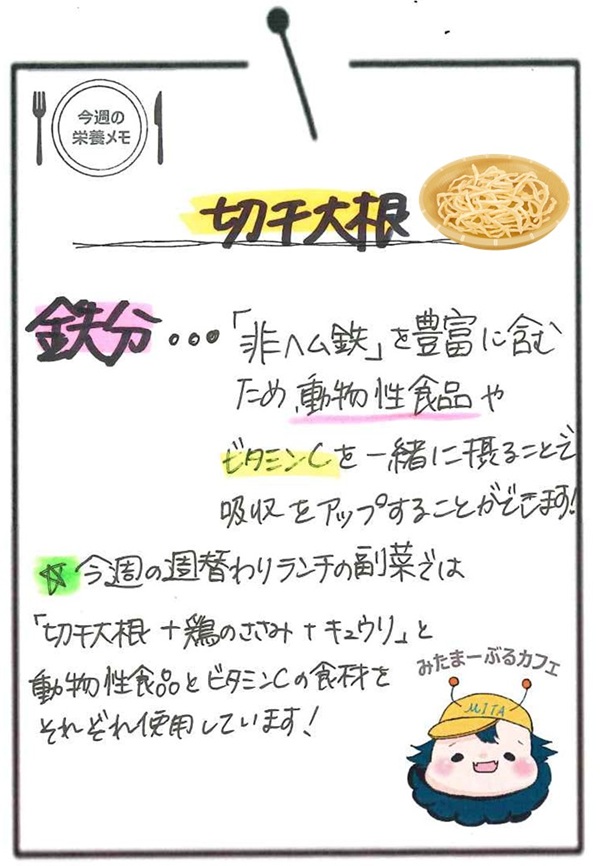 今週の
栄養メモ
切干大根
鉄分・・・「非ヘム鉄」を豊富に含む
ため、動物性食品や
ビタミンCを一緒に摂ることで
吸収をアップすることができます!
☆今週の週替わりランチの副菜では
「切干大根+鶏のささみ+キュウリ」と
動物性食品とビタミンCの食材を
それぞれ使用しています!
みたまーぶるカフェ
MITA